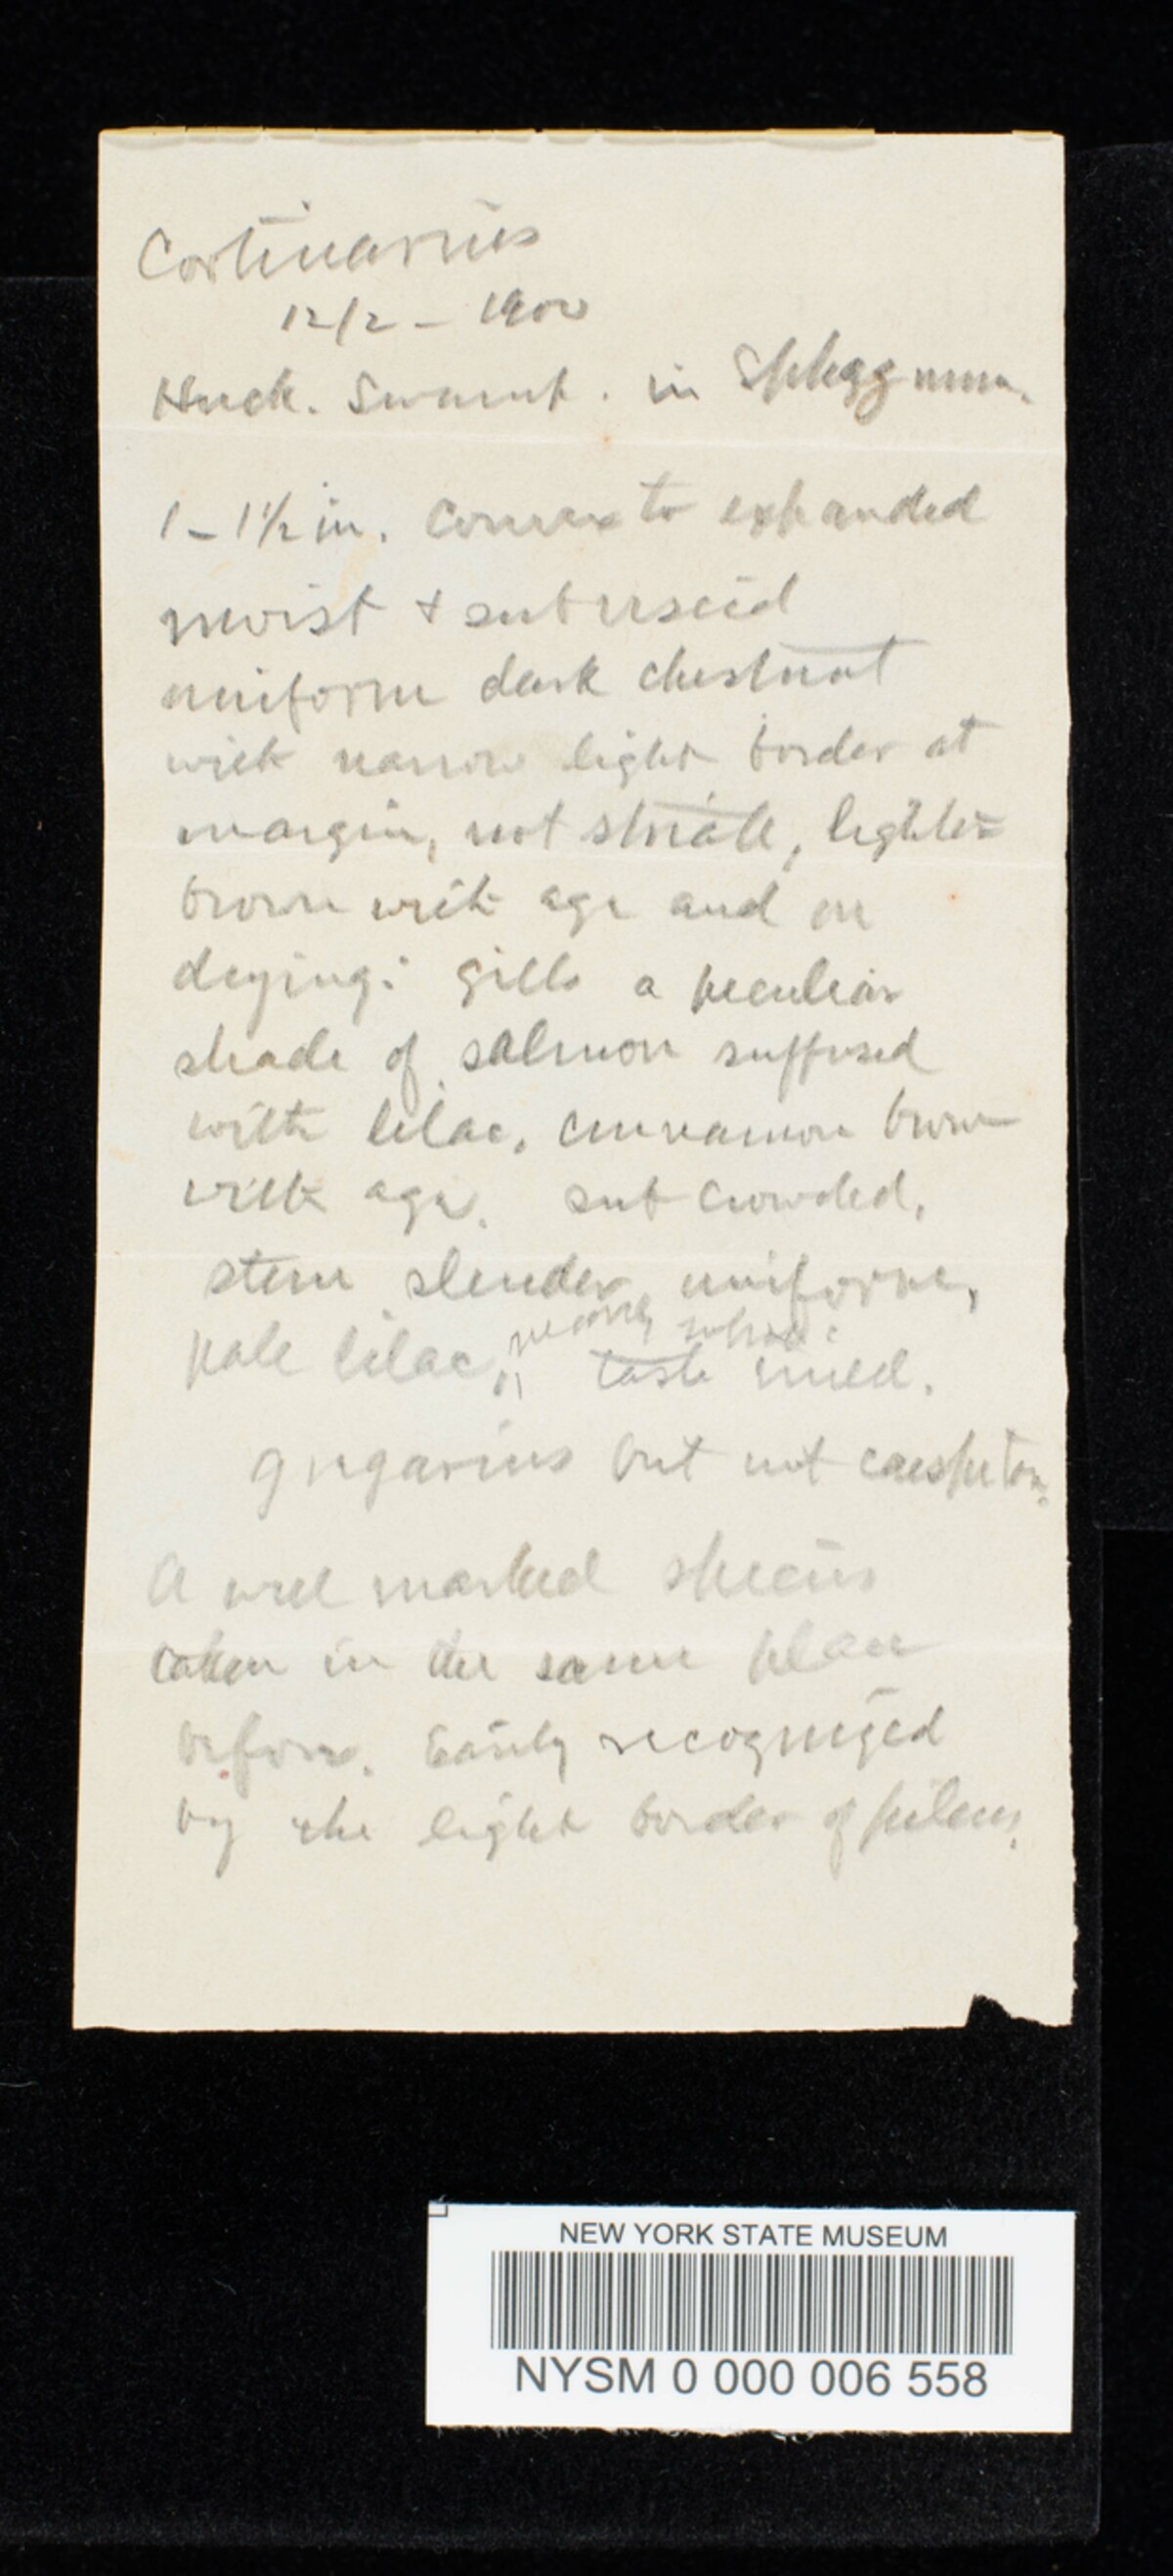 Cortinarius
12/2 - 1900
Huck. Swamp. in Sphagnum.
1-1½ in. Convex to expanded
moist & subviscid
uniform dark chestnut
with narrow light border at
margin, not striate, lighter
brown with age and on
drying: gills a peculiar
shade of salmon suffused
with lilac, cinnamon brown
with age. sub crowded,
stem slender, uniform,
nearly white.
pale lilac, taste mild.
gregarius but not caespitose.
A well marked species
taken in the same place
before. Easily recognized
by the light border of pileus.
NEW YORK STATE MUSEUM
NYSM 0 000 006 558